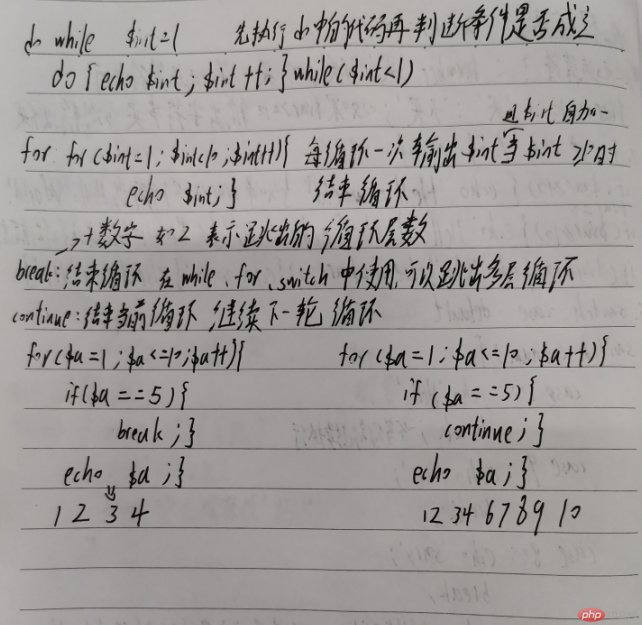 do while $int=1 先执行do中的代码再判断条件是否成立
do{echo $int; $int++;}while($int<1)
且$int自加一
for for($int=1; $int<10; $int++){ 每循环一次输出$int 当$int≥10时
echo $int;} 结束循环
→+数字 如2 表示跳出的循环层数
break:结束循环 在while、for、switch中使用,可以跳出多层循环
continue:结束当前循环,继续下一轮循环
for($a=1;$a<=10;$a++){ for($a=1;$a<=10;$a++){
if($a==5){ if($a==5){
break;} continue;}
echo $a;} echo $a;}
⇓
1 2 3 4 1 2 3 4 6 7 8 9 10
php